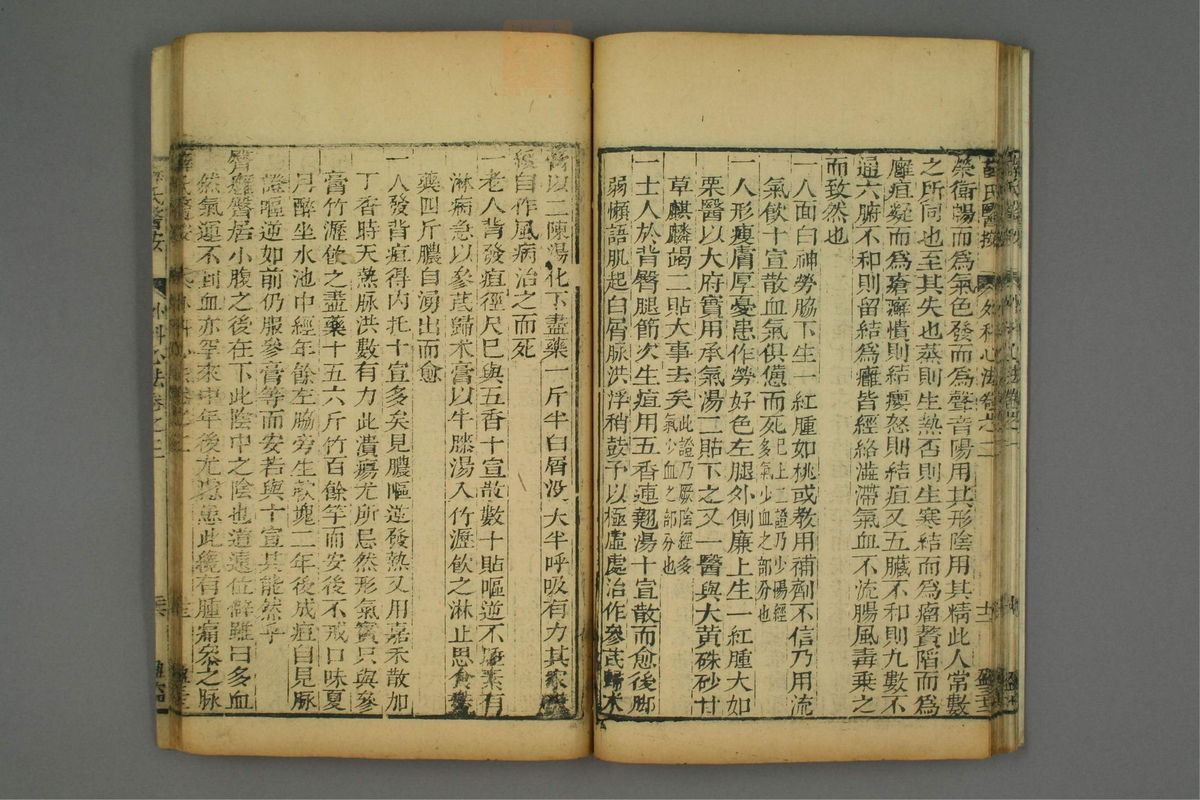 薛氏醫按 外科心法卷之二 十二
榮衛陽而為氣色發而為聲音陽用其形陰用其精此人常數
之所同也至其失也蒸則生熱否則生寒結而為瘤贅陷而為
癰疽凝而為瘡癬憤則結癭怒則結疽又五臟不和則九數不
通六腑不和則留結為癰皆經絡澁滯氣血不流腸風毒乘之
而致然也
一人面白神勞脇下生一紅腫如桃或教用補劑不信乃用流
氣飲十宣散血氣俱憊而死已上二證乃少陽經多氣少血之部分也
一人形瘦膚厚憂患作勞好色左腿外側廉上生一紅腫大如
栗醫以大府實用承氣湯二貼下之又一醫與大黃硃砂甘
草麒麟竭二貼大事去矣此證乃厥陰經多氣少血之部分也
一士人於背臀腿節次生疽用五香連翹湯十宣散而愈後脚
弱懶語肌起白屑脉洪浮稍鼓予以極虛處治作參芪歸术
膏以二陳湯化下盡藥一斤半白屑沒大半呼吸有力其家
自作風病治之而死
一老人背發疽徑尺已與五香十宣散數十貼嘔逆不睡素有
淋病急以參芪歸术膏以牛膝湯入竹瀝飲之淋止思食
藥四斤膿自湧出而愈
一人發背疽得內托十宣多矣見膿嘔逆發熱又用嘉禾散加
丁香時天熱脉洪數有力此潰瘍尤所忌然形氣實只與參
膏竹瀝飲之盡藥十五六斤竹百餘竿而安後不戒口味夏
月醉坐水池中經年餘左脇旁生軟塊二年後成疽自見脉
證嘔逆如前仍服參膏等而安若與十宣其能然乎
臀癰臀居小腹之後在下此陰中之陰也道遠位僻雖曰多血
然氣運不到血亦罕來中年後尤慮患此纔有腫痛參之脉
薛氏醫按